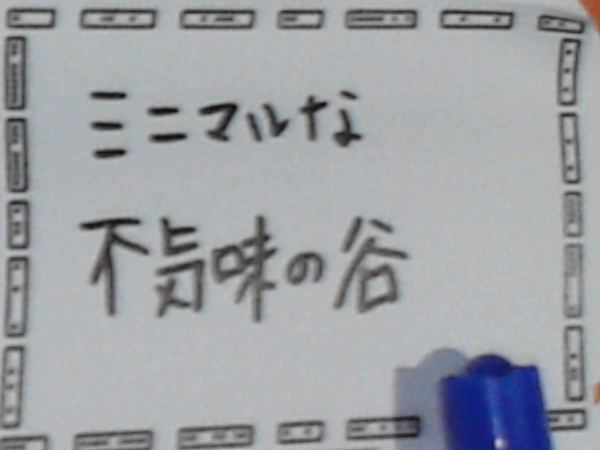 ミニマルな
不気味の谷